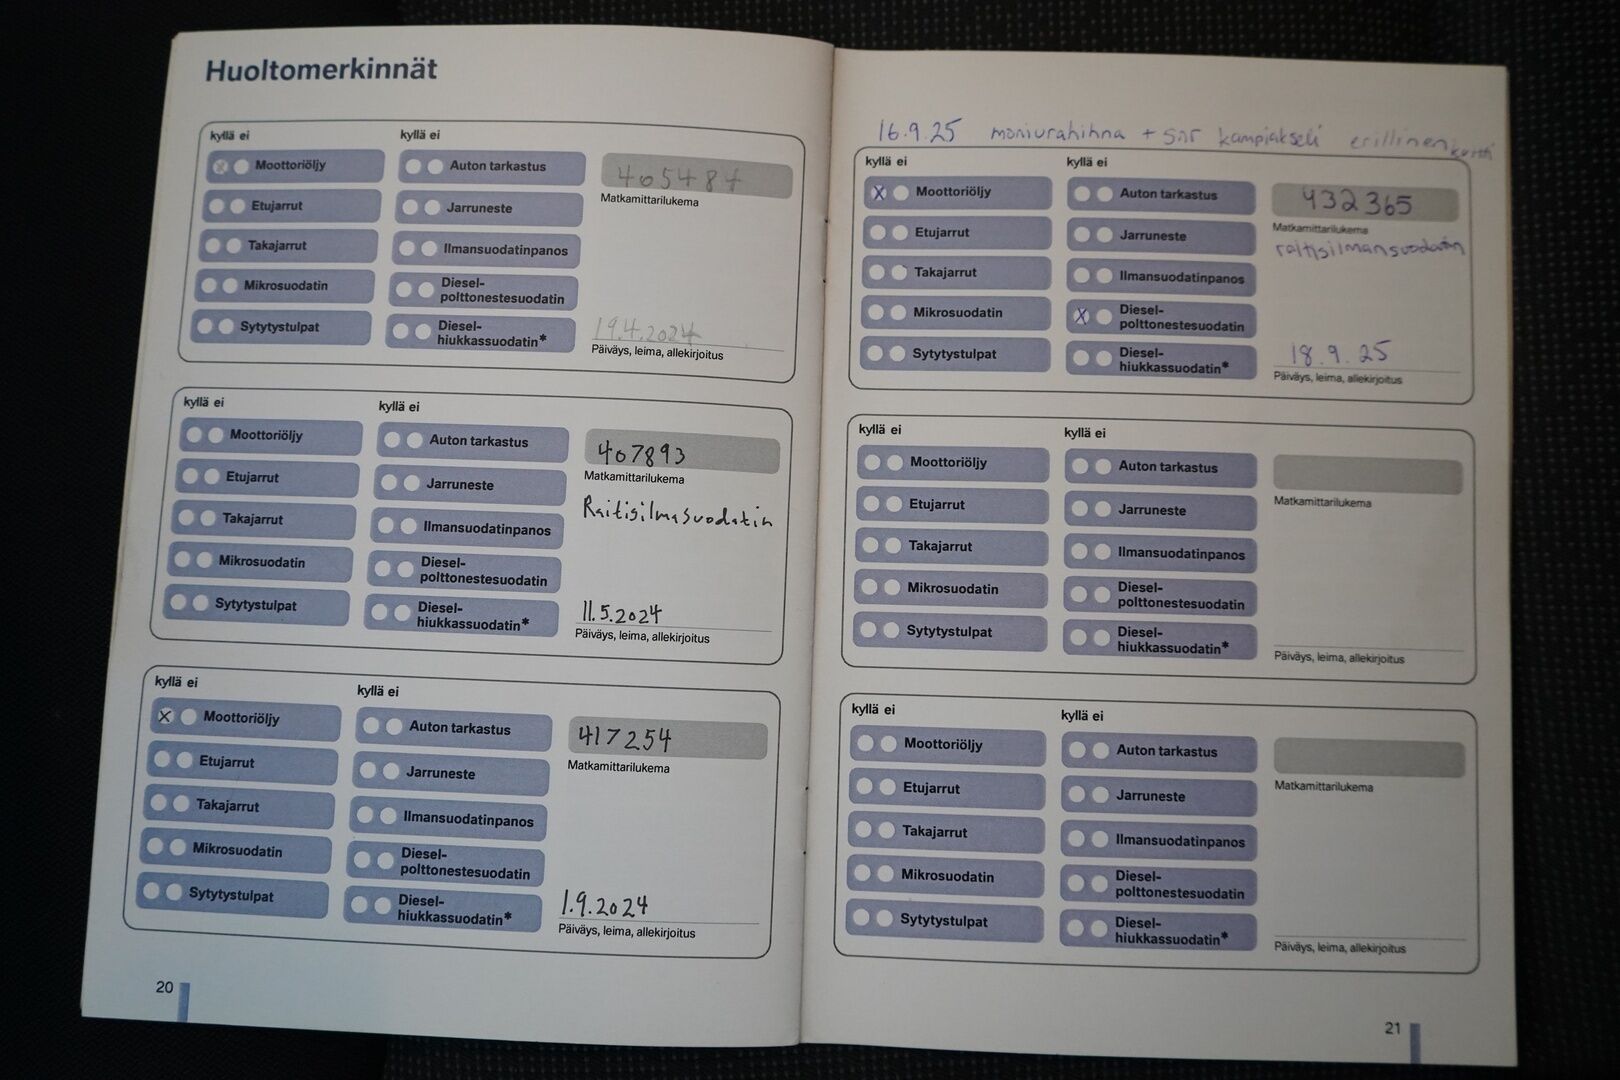 Huoltomerkinnät
kyllä ei
kyllä ei
Moottoriöljy
Auton tarkastus
405484
Matkamittarilukema
Etujarrut
Jarruneste
Takajarrut
Ilmansuodatinpanos
Mikrosuodatin
Diesel-
polttonestesuodatin
Sytytystulpat
Diesel-
hiukkassuodatin*
19.4.2024
Päiväys, leima, allekirjoitus
kyllä ei
kyllä ei
Moottoriöljy
Auton tarkastus
407893
Matkamittarilukema
Etujarrut
Jarruneste
Raitisilmasuodatin
Takajarrut
Ilmansuodatinpanos
Mikrosuodatin
Diesel-
polttonestesuodatin
Sytytystulpat
Diesel-
hiukkassuodatin*
11.5.2024
Päiväys, leima, allekirjoitus
kyllä ei
kyllä ei
X Moottoriöljy
Auton tarkastus
417254
Matkamittarilukema
Etujarrut
Jarruneste
Takajarrut
Ilmansuodatinpanos
Mikrosuodatin
Diesel-
polttonestesuodatin
Sytytystulpat
Diesel-
hiukkassuodatin*
1.9.2024
Päiväys, leima, allekirjoitus
20
16.9.25 moniurahihna + snr kampiakseli erillinen
kyllä ei
kyllä ei
X Moottoriöljy
Auton tarkastus
432365
Matkamittarilukema
raitisilmansuodatin
Etujarrut
Jarruneste
Takajarrut
Ilmansuodatinpanos
Mikrosuodatin
X Diesel-
polttonestesuodatin
Sytytystulpat
Diesel-
hiukkassuodatin*
18.9.25
Päiväys, leima, allekirjoitus
kyllä ei
kyllä ei
Moottoriöljy
Auton tarkastus
Matkamittarilukema
Etujarrut
Jarruneste
Takajarrut
Ilmansuodatinpanos
Mikrosuodatin
Diesel-
polttonestesuodatin
Sytytystulpat
Diesel-
hiukkassuodatin*
Päiväys, leima, allekirjoitus
kyllä ei
kyllä ei
Moottoriöljy
Auton tarkastus
Matkamittarilukema
Etujarrut
Jarruneste
Takajarrut
Ilmansuodatinpanos
Mikrosuodatin
Diesel-
polttonestesuodatin
Sytytystulpat
Diesel-
hiukkassuodatin*
Päiväys, leima, allekirjoitus
21